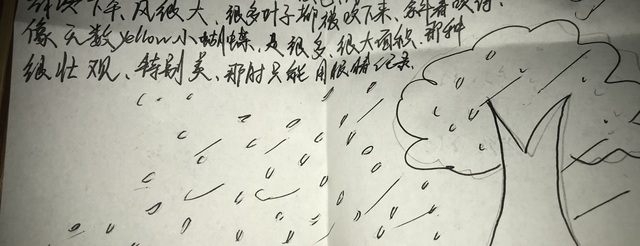 风很大,很多叶子都被吹下来,
像无数yellow小蝴蝶,是很多、很大面积、那种
很壮观、特别美、那时只能用眼睛纪录.